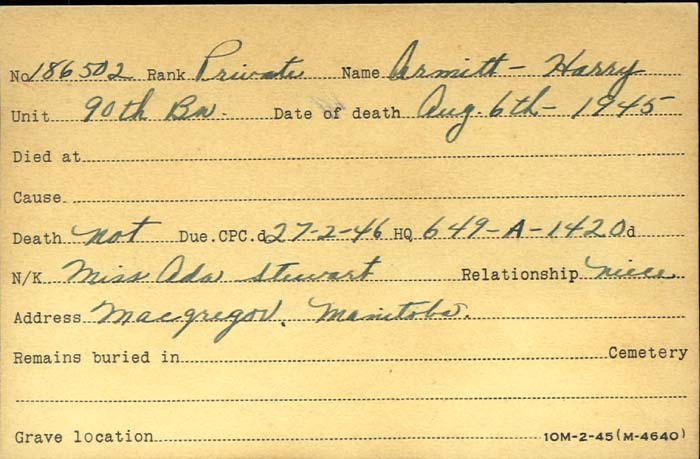 No 186502 Rank Private Name Armitt - Harry
Unit 90th Bn. Date of death Aug. 6th - 1945
Died at
Cause
Death not Due. CPC. d 27-2-46 HQ 649-A-1420 d
N/K Miss Ada Stewart Relationship niece
Address Macgregor, Manitoba.
Remains buried in Cemetery
Grave location 10M-2-45 (M-4640)